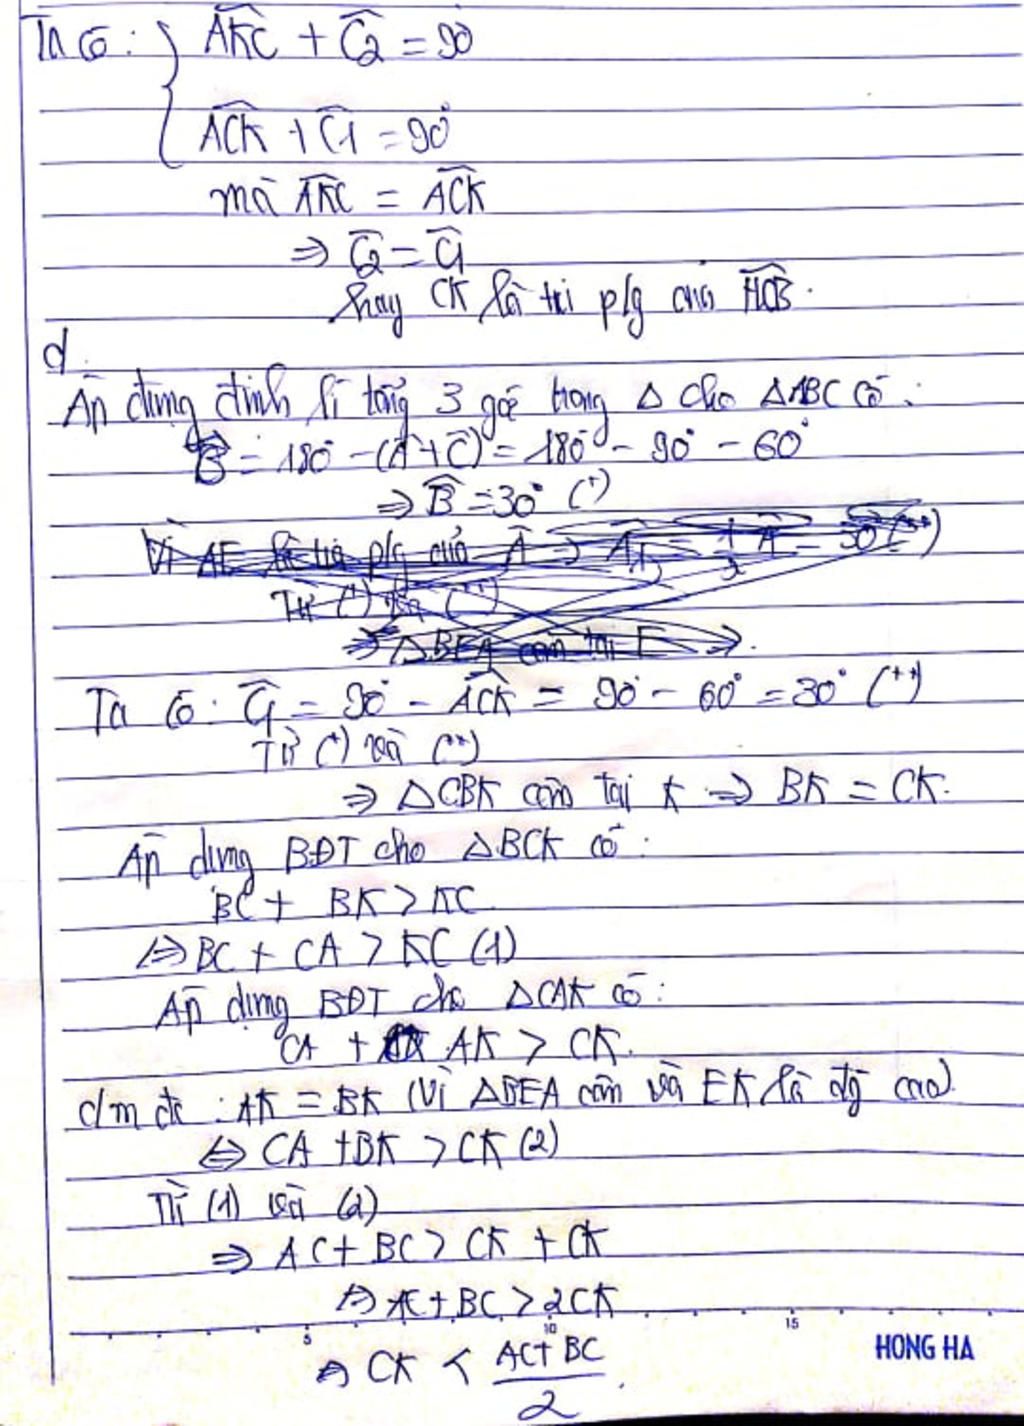 Ta có: { AKC + C2 = 90
ACK + C1 = 90°
mà AKC = ACK
⇒ C2 = C1
hay CK là tri plg của HCB.
d.
Áp dụng định lí tổng 3 góc trong Δ cho ΔABC có:
B = 180° - (A + C) = 180° - 90° - 60°
⇒ B = 30° (*)
Vì AE là tia plg của A ⇒ A1 = 1/2 A = 30° (**)
Từ (*) và (**)
⇒ ΔBEA cân tại E
Ta có: C1 = 90° - ACK = 90° - 60° = 30° (**)
Từ (*) và (**)
⇒ ΔCBK cân tại K ⇒ BK = CK.
Áp dụng BĐT cho ΔBCK có:
BC + BK > KC
⇔ BC + CA > KC (1)
Áp dụng BĐT cho ΔCAK có:
CA + AK > CK.
c/m đc: AK = BK (Vì ΔBEA cân và EK là đg cao)
⇔ CA + BK > CK (2)
Từ (1) và (2)
⇒ AC + BC > CK + CK
⇔ AC + BC > 2CK
5 10 15
HONG HA
⇒ CK < AC + BC / 2.